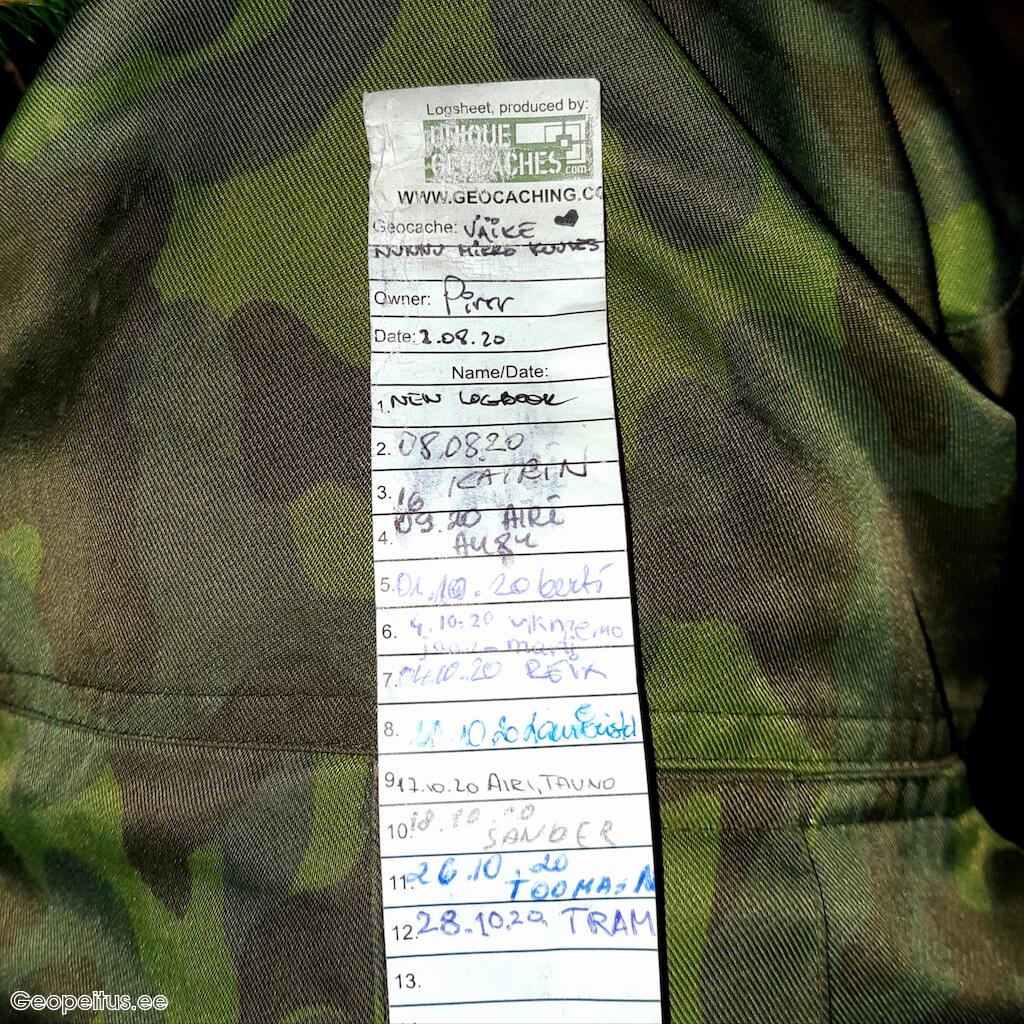 Logsheet, produced by:
UNIQUE
GEOCACHES.com
WWW.GEOCACHING.CO
Geocache: VÄIKE ♥
NUNNU MIKRO KUUKES
Owner: Pirrr
Date: 2.08.20
Name/Date:
1. NEW LOGBOOK
2. 08.08.20
3. KATRIN
16
09.20 AIRI
4.
5. 01.10.20 berti
6. 4.10.20
7. 04.10.20
8. 10.20
9 17.10.20 AIRI, TAUNO
10. 18.10.20
SANDER
11. 26.10.20
TOOMASN
12. 28.10.20 TRAM
13.
Geopeitus.ee